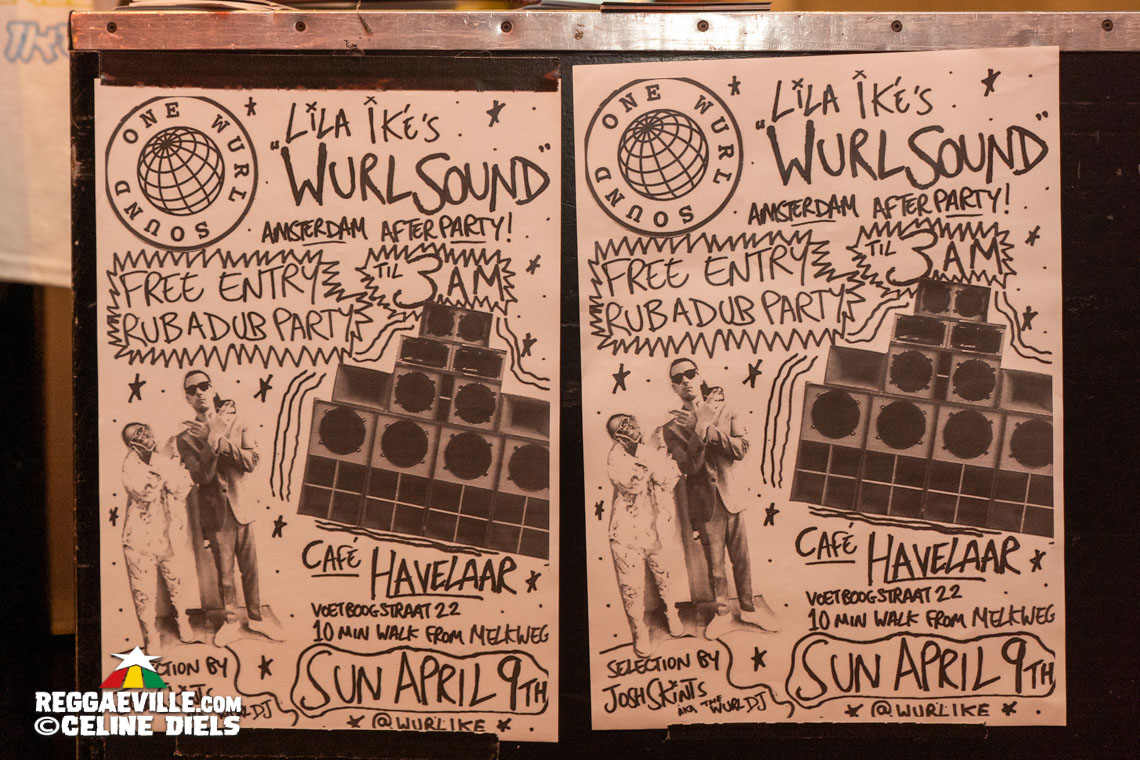 ONE WURL SOUND
LiLA IKÉ'S
"WURLSOUND"
AMSTERDAM AFTERPARTY!
FREE ENTRY
RUBADUB PARTY
TIL
3AM
CAFÉ
HAVELAAR
VOETBOOGSTRAAT 22
10 MIN WALK FROM MELKWEG
SELECTION BY
SUN APRIL 9TH
@WURLIKE
ONE WURL SOUND
LiLA IKÉ'S
"WURLSOUND"
AMSTERDAM AFTERPARTY!
FREE ENTRY
RUBADUB PARTY
TIL
3AM
CAFÉ
HAVELAAR
VOETBOOGSTRAAT 22
10 MIN WALK FROM MELKWEG
SELECTION BY
JOSH SKiNTS
AKA THE WURL DJ
SUN APRIL 9TH
@WURLIKE
REGGAEVILLE.COM
©CELINE DIELS